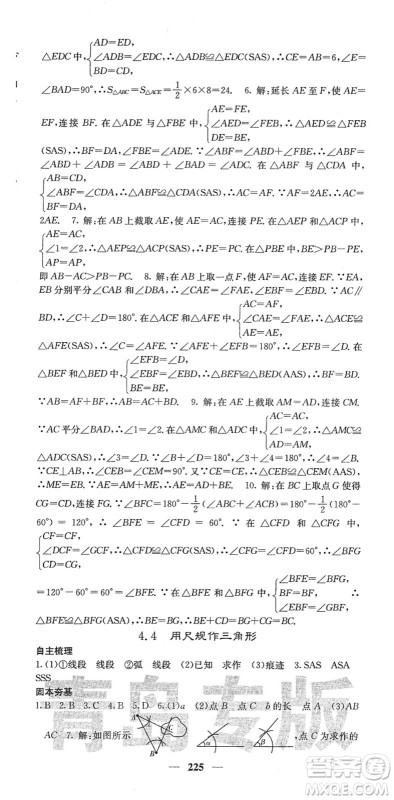 AD=ED,
△EDC 中,∠ADC=∠EDC, ∴△ADC≌△EDC(SAS),∴CE=AB=6,∠E=
BD=CD,
∠BAD=90°,∴S△ABC=S△ACE=1/2×6×8=24. 6. 解:延长 AE 至 F,使
AE=FE,
EF,连接 BF. 在△ADE 与△FBE 中,∠AED=∠FEB, ∴△ADE≌△FBE
DE=BE,
(SAS),∴BF=DA,∠FBE=∠ADE. ∵∠ABF=∠ABD+∠FBE,∴∠ABF=
∠ABD+∠ADE=∠ABD+∠BAD=∠ADC. 在△ABF 与△CDA 中,
AB=CD,
∠ABF=∠CDA,∴△ABF≌△CDA(SAS),∴AC=AF. ∵AF=2AE,∴AC=
BF=DA,
2AE. 7. 解:在 AB 上截取 AE,使 AE=AC,连接 PE. 在△AEP 与△ACP 中,
AE=AC,
∠1=∠2, ∴△AEP≌△ACP(SAS),∴PE=PC. 在△PBE 中,BE>PB-PE,
AP=AP,
即 AB-AC>PB-PC. 8. 解:在 AB 上取一点 F,使 AF=AC,连接 EF. ∵EA,
EB 分别平分∠CAB 和∠DBA,∴∠CAE=∠FAE,∠EBF=∠EBD. ∵AC∥
AC=AF,
BD,∴∠C+∠D=180°. 在△ACE 和△AFE 中,∠CAE=∠FAE, ∴△ACE≌
AE=AE,
△AFE(SAS),∴∠C=∠AFE. ∵∠AFE+∠EFB=180°,∴∠EFB=∠D. 在
∠EFB=∠D,
△BEF 和△BED 中,∠EBF=∠EBD, ∴△BEF≌△BED(AAS),∴BF=BD.
BE=BE,
∵AB=AF+BF,∴AB=AC+BD. 9. 解:在 AE 上截取 AM=AD,连接 CM.
AC=AC,
∵AC 平分∠BAD,∴∠1=∠2. 在△AMC 和△ADC 中,∠1=∠2, ∴△AMC≌
AD=AM,
△ADC(SAS),∴∠3=∠D. ∵∠B+∠D=180°,∠3+∠4=180°,∴∠4=∠B.
∵CE⊥AB,∴∠CEB=∠CEM=90°. 又∵CE=CE,∴△CEM≌△CEB(AAS),
∴ME=EB. ∵AE=AM+ME,∴AE=AD+BE. 10. 解:在 BC 上取点 G 使得
CG=CD,连接 FG. ∵∠BFC=180°-1/2(∠ABC+∠ACB)=180°-1/2(180°-
60°)=120°,∴∠BFE=∠CFD=60°. ∵在△CFG 和△CFD 中,
CF=CF,
∠DCF=∠GCF,∴△CFG≌△CFD(SAS),∴∠CFG=∠CFD=60°,∴∠BFG
CG=CD,
∠EBF=∠GBF,
=120°-60°=60°=∠BFE. ∵在△BFE 和△BFG 中,BF=BF,
∠BFE=∠BFG,
∴△BFE≌△BFG(ASA),∴BE=BG,∴BE+CD=BG+CG=BC.
4.4 用尺规作三角形
自主梳理
1.(1)①线段 ②线段 ③弧 线段 (2)已知 求作 (3)痕迹 3. SAS ASA
SSS
固本夯基
1. B 2. B 3. C 4. B 5. A 6. (1)a (2)点 B 点 C b 的长 点 A (3)AB
AC 7. 解:如图所示.
,点 C 为求作的
225
青岛专版
答案圈